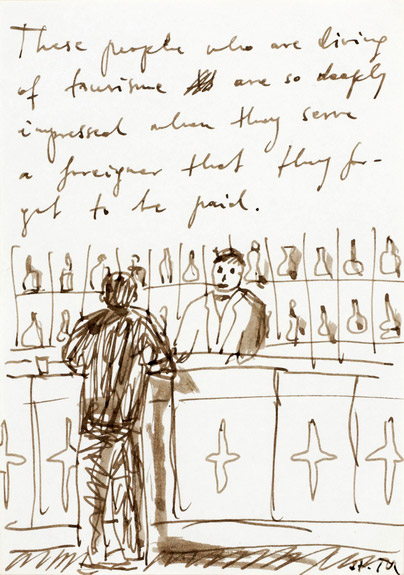 These people who are living
of tourisme are so deeply
impressed when they serve
a foreigner that they for-
get to be paid.